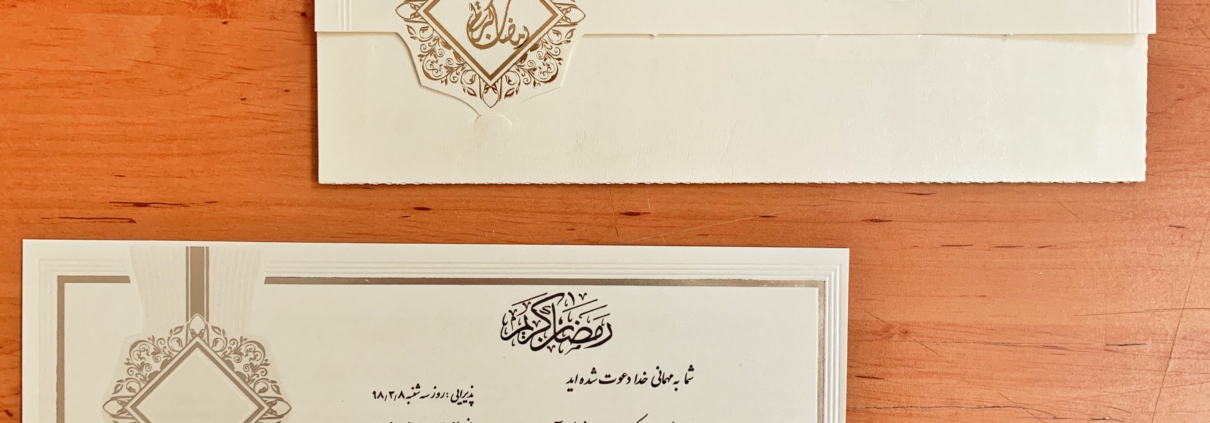 رمضان کریم
رمضان کریم
شما به مهمانی خدا دعوت شده اید
پذیرایی : روز سه شنبه ۹۸/۳/۸